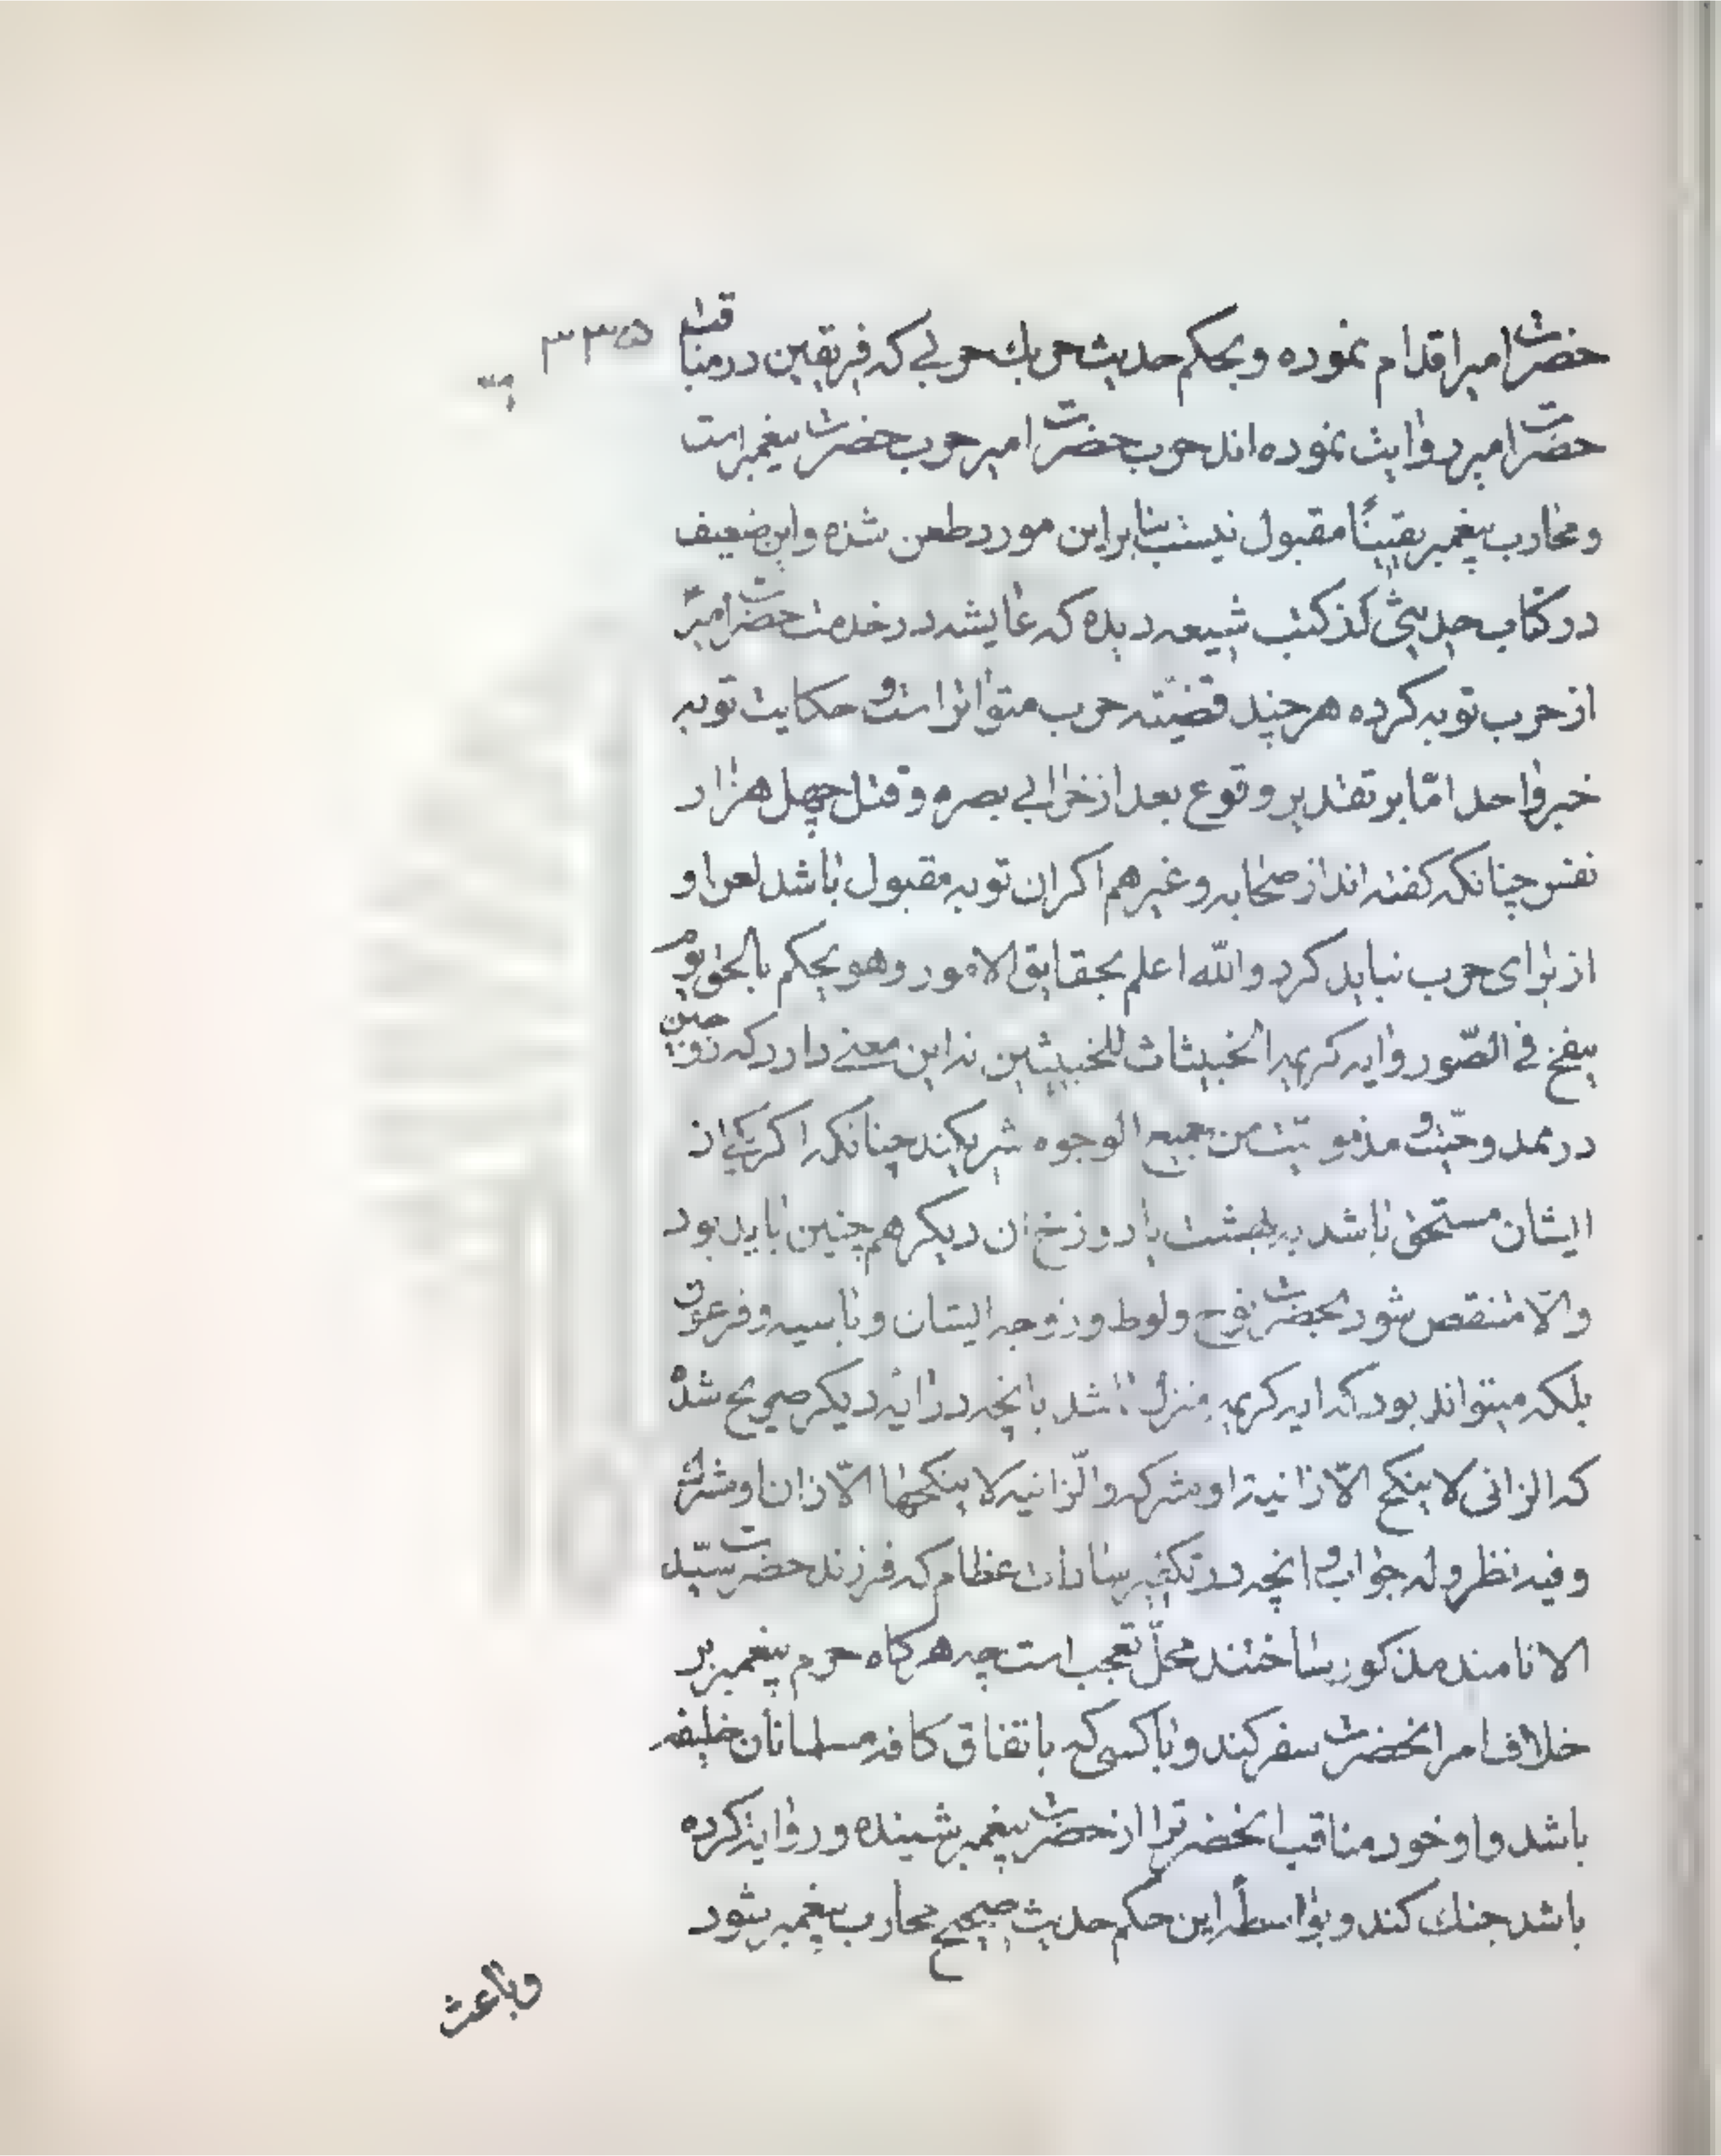 حضرت امیر اقدام نموده و بحکم حدیث حربك حربی که فریقین در مناقب ۳۳۵
حضرت امیر روایت نموده اند حرب حضرت امیر حرب حضرت پیغمبر است
و محارب پیغمبر یقینًا مقبول نیست بنابراین مورد طعن شده و این ضعیف
در کتاب حدیثی از کتب شیعه دیده که عایشه در خدمت حضرت امیر
از حرب توبه کرده هر چند قضیّه حرب متواتر است و حکایت توبه
خبر واحد امّا بر تقدیر وقوع بعد از خرابی بصره و قتل چهل هزار
نفس چنانکه گفته اند از صحابه و غیر هم اکر ان توبه مقبول باشد لعن او
از برای حرب نباید کرد والله اعلم بحقایق الامور وهو یحکم بالحق یوم
ینفخ فی الصّور وایه کریمه الخبیثات للخبیثین نه این معنی دارد که زوجین
در نمد وحیّت و مذمومیّت من جمیع الوجوه شریکند چنانکه اکر یکی از
ایشان مستحق باشد به بهشت یا دوزخ ان دیکر هم چنین باید بود
والّا منتقص شود بحضرت نوح ولوط و زوجه ایشان و باسیه و فرعون
بلکه میتواند بود که ایه کریمه منزل باشد بانچه در ایه دیکر صریح شده
که الزانی لا ینکح الّا زانیة او مشرکه والّزانیه لا ینکحها الّا زان او مشرك
وفیه نظر وله جواب و انچه در تکفیر سادات عظام که فرزند حضرت سیّد
الانامند مذکور ساختند محلّ تعجب است چه هرکاه حرم پیغمبر بر
خلاف امر انحضرت سفر کند و با کسی که باتفاق کافه مسلمانان خلیفه
باشد و او خود مناقب انحضرت را از حضرت پیغمبر شینده و روایة کرده
باشد جنك کند و بواسطه این حکم حدیث صحیح محارب پیغمبر شود
وباعث